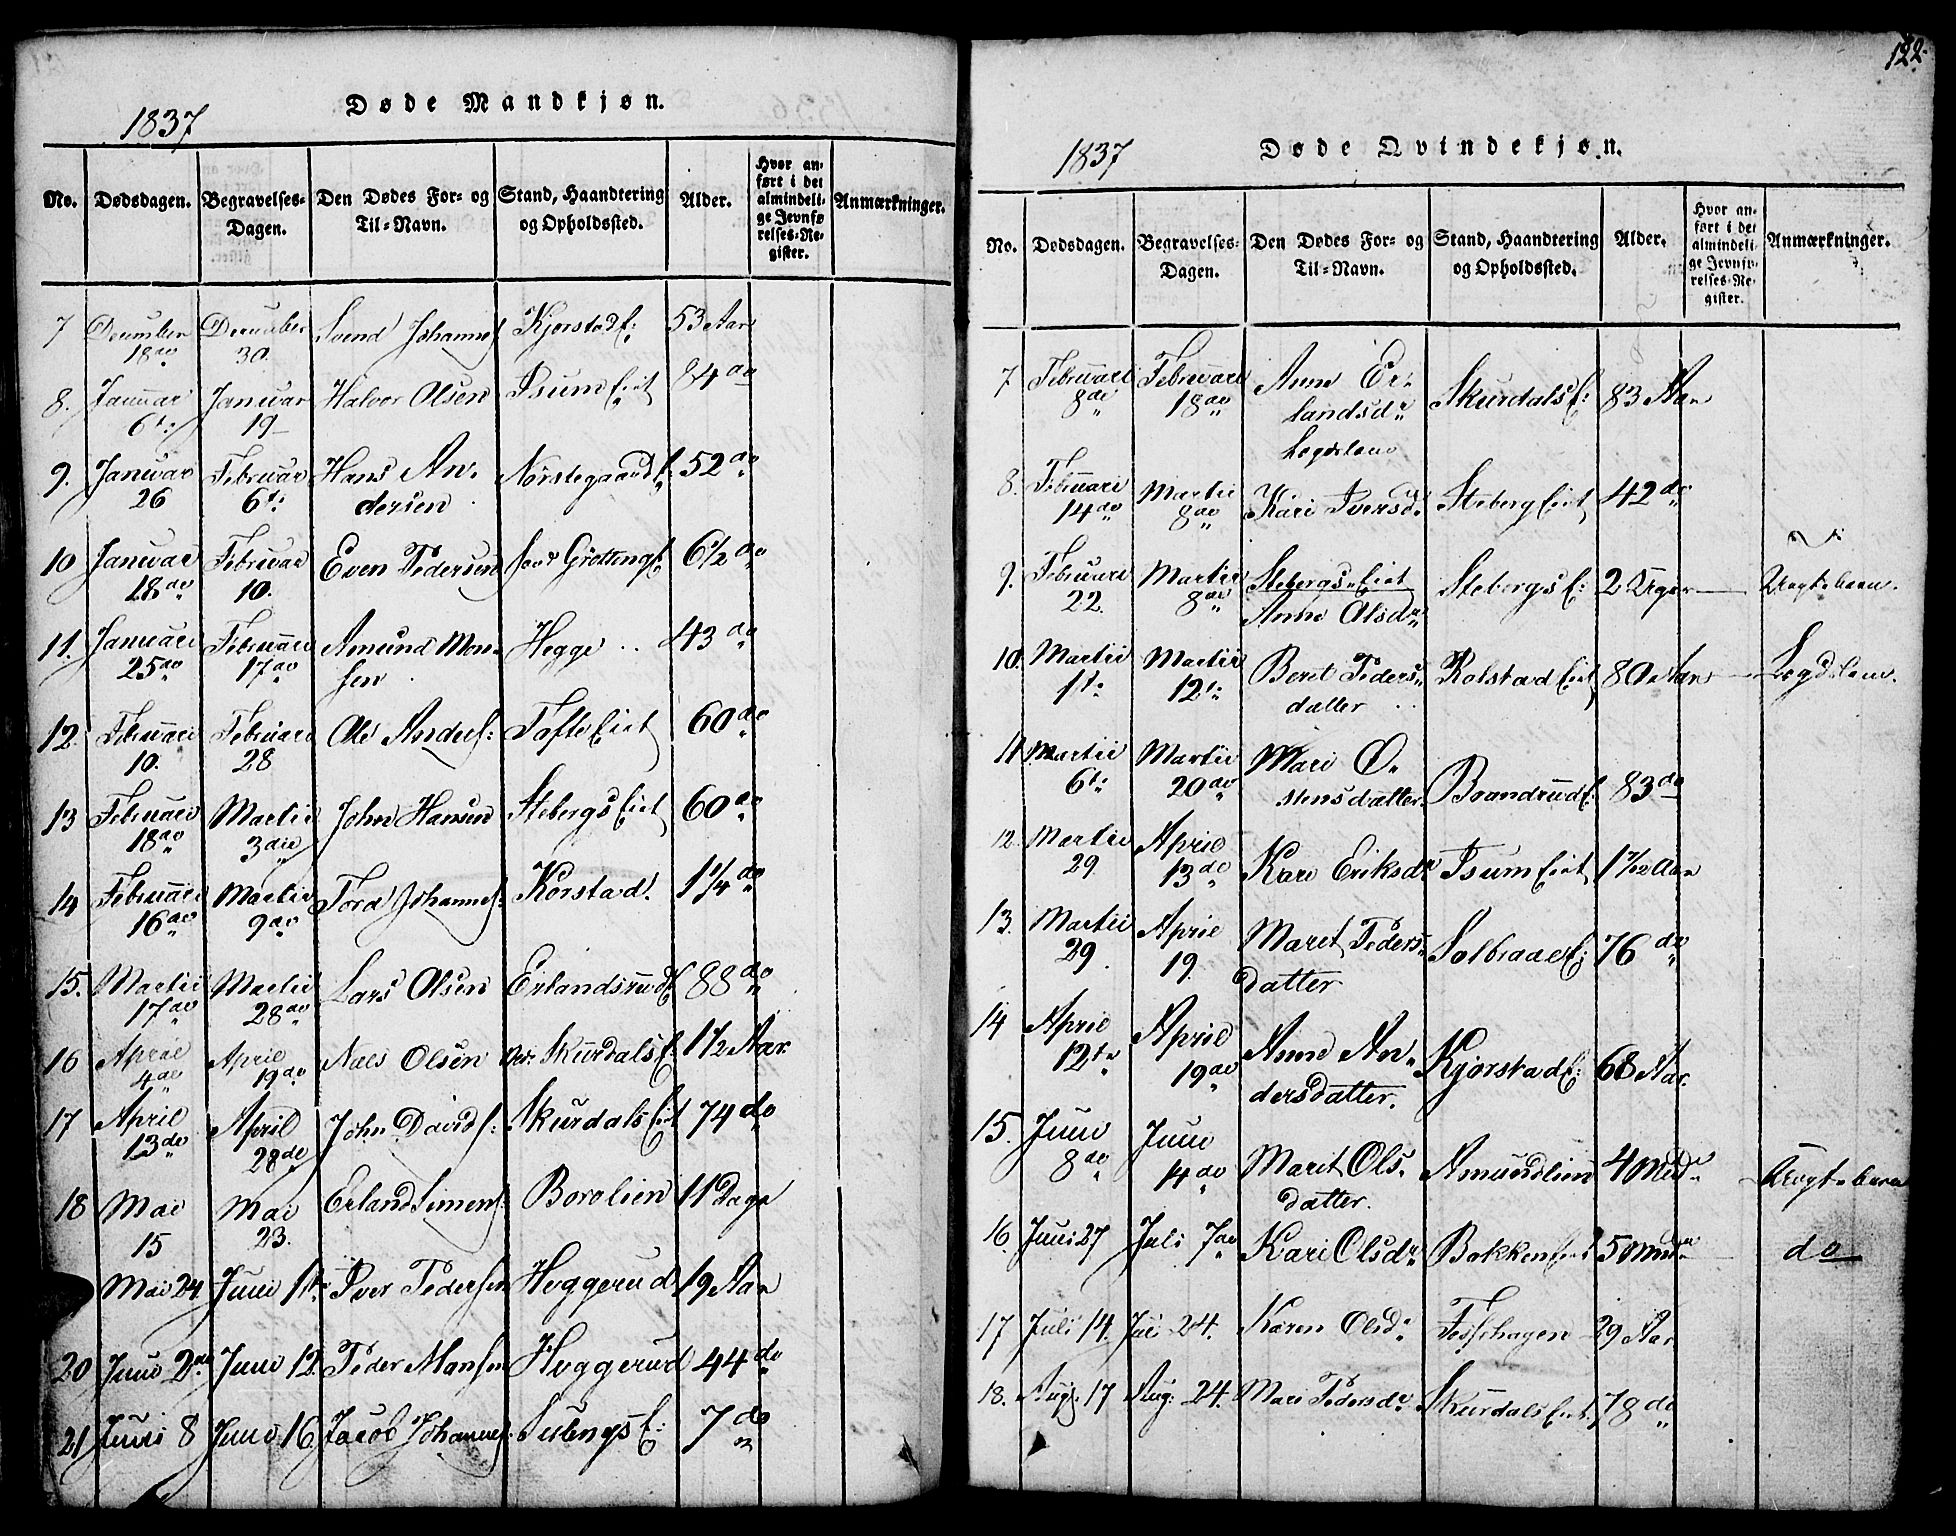 1837
Døde Mandkjøn.
No. Dødsdagen. Begravelses-Dagen. Den Dødes For- og Til-Navn. Stand, Haandtering og Opholdssted. Alder. Hvor anført i det almindelige Jevnførelses-Register. Anmærkninger.
7 December 18do December 30. Svend Johannes Kjorstad E: 53 Aar
8. Januar 6t: Januar 19 Halvor Olsen Isum Eiet 84 do
9. Januar 26 Februar 6t: Hans Andersen Nørstegaard E. 52 do
10 Januar 28do Februar 10. Even Pedersen Grötting E. 6½ do
11. Januari 25do Februari 17do Amund Monsen Hegge 43 do
12. Februari 10. Februari 28 Ole Anders: Tofte Eiet 60 do
13 Februari 18do Martii 3die John Hansen Stebergs Eiet 60 do
14 Februari 16do Martii 9do Tord Johannes: Korstad. 1¼ do
15. Martii 17do Martii 28do Lars Olsen Erlandsrud E 88 do
16 April 4de April 19do Nals Olsen Skurdals E. 1½ Aar.
17 April 13do April 28de John Davids: Skurdals Eiet 74 do
18 Mai 15 Mai 23. Erland Simens: Borolien 11 Dage
Mai 24 Juni 1t: Iver Pedersen Heggerud 19 Aar
20 Juni 2do Juni 12. Peder Monsen Heggerud 44 do
21 Juni 8 Juni 16 Jacob Johannes: E: 7 do
122.
1837
Døde Qvindekjøn.
No. Dødsdagen. Begravelses-Dagen. Den Dødes For- og Til-Navn. Stand, Haandtering og Opholdssted. Alder. Hvor anført i det almindelige Jevnførelses-Register. Anmærkninger.
7 Februari 8de Februari 18do Anne Erlandsdr Legdslem Skurdals E: 83 Aar
8. Februari 14do Martii 8do Kari Iversdr Steberg Eiet 42 do
9. Februari 22. Martii 8de Stebergs Eiet Anne Olsdr Stebergs E: 2 Uger Uegte barn.
10. Martii 1t: Martii 12t: Beret Pedersdatter Kolstad Eiet 80 Aar Legdslem.
11 Martii 6t: Martii 20do Mari Østensdatter. Brandrud E. 83 do
12. Martii 29 April 13de Kari Eriksdr Isum Eiet 1 7/12 Aar
13. Martii 29 April 19. Maret Pedersdatter Solbraae E: 76 do
14 April 12te April 19do Anne Andersdatter. Kjørstad E: 68 Aar.
15. Juni 8do Juni 14do Marit Olsdatter. Amundlien 4 Mdr Uegte barn
16. Juni 27 Juli 7do Kari Olsdr Bakken Eiet 5 do
17 Juli 14. Juli 24. Karen Olsdr Fosshagen 29 Aar
18. Aug: 17 Aug: 24. Mari Pedersdr Skurdals Eiet. 78 do